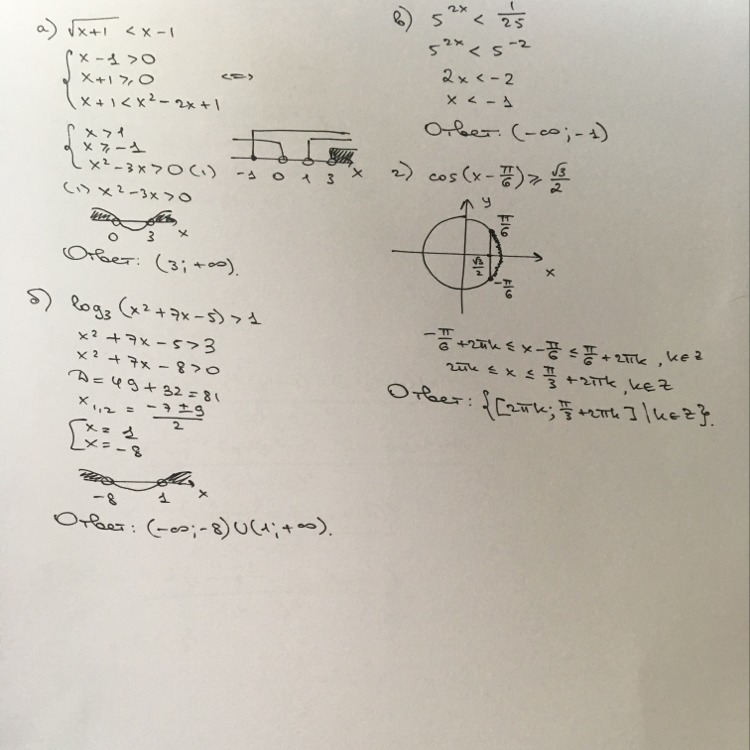 а) √(x+1) < x-1
{ x-1>0
x+1⩾0 <=>
x+1<x²-2x+1
{ x>1
x⩾-1
x²-3x>0 (1)
-1 0 1 3 x
(1) x²-3x>0
0 3 x
Ответ: (3; +∞).
б) log₃(x²+7x-5)>1
x²+7x-5>3
x²+7x-8>0
D=49+32=81
x₁,₂ = (-7±9)/2
[ x=1
x=-8
-8 1 x
Ответ: (-∞;-8)∪(1;+∞).
в) 5^(2x) < 1/25
5^(2x) < 5^(-2)
2x<-2
x<-1
Ответ: (-∞;-1)
г) cos(x-π/6)⩾√3/2
y
π/6
√3/2
-π/6
x
-π/6+2πk ⩽ x-π/6 ⩽ π/6+2πk, k∈Z
2πk ⩽ x ⩽ π/3+2πk, k∈Z
Ответ: {[2πk; π/3+2πk] | k∈Z}.